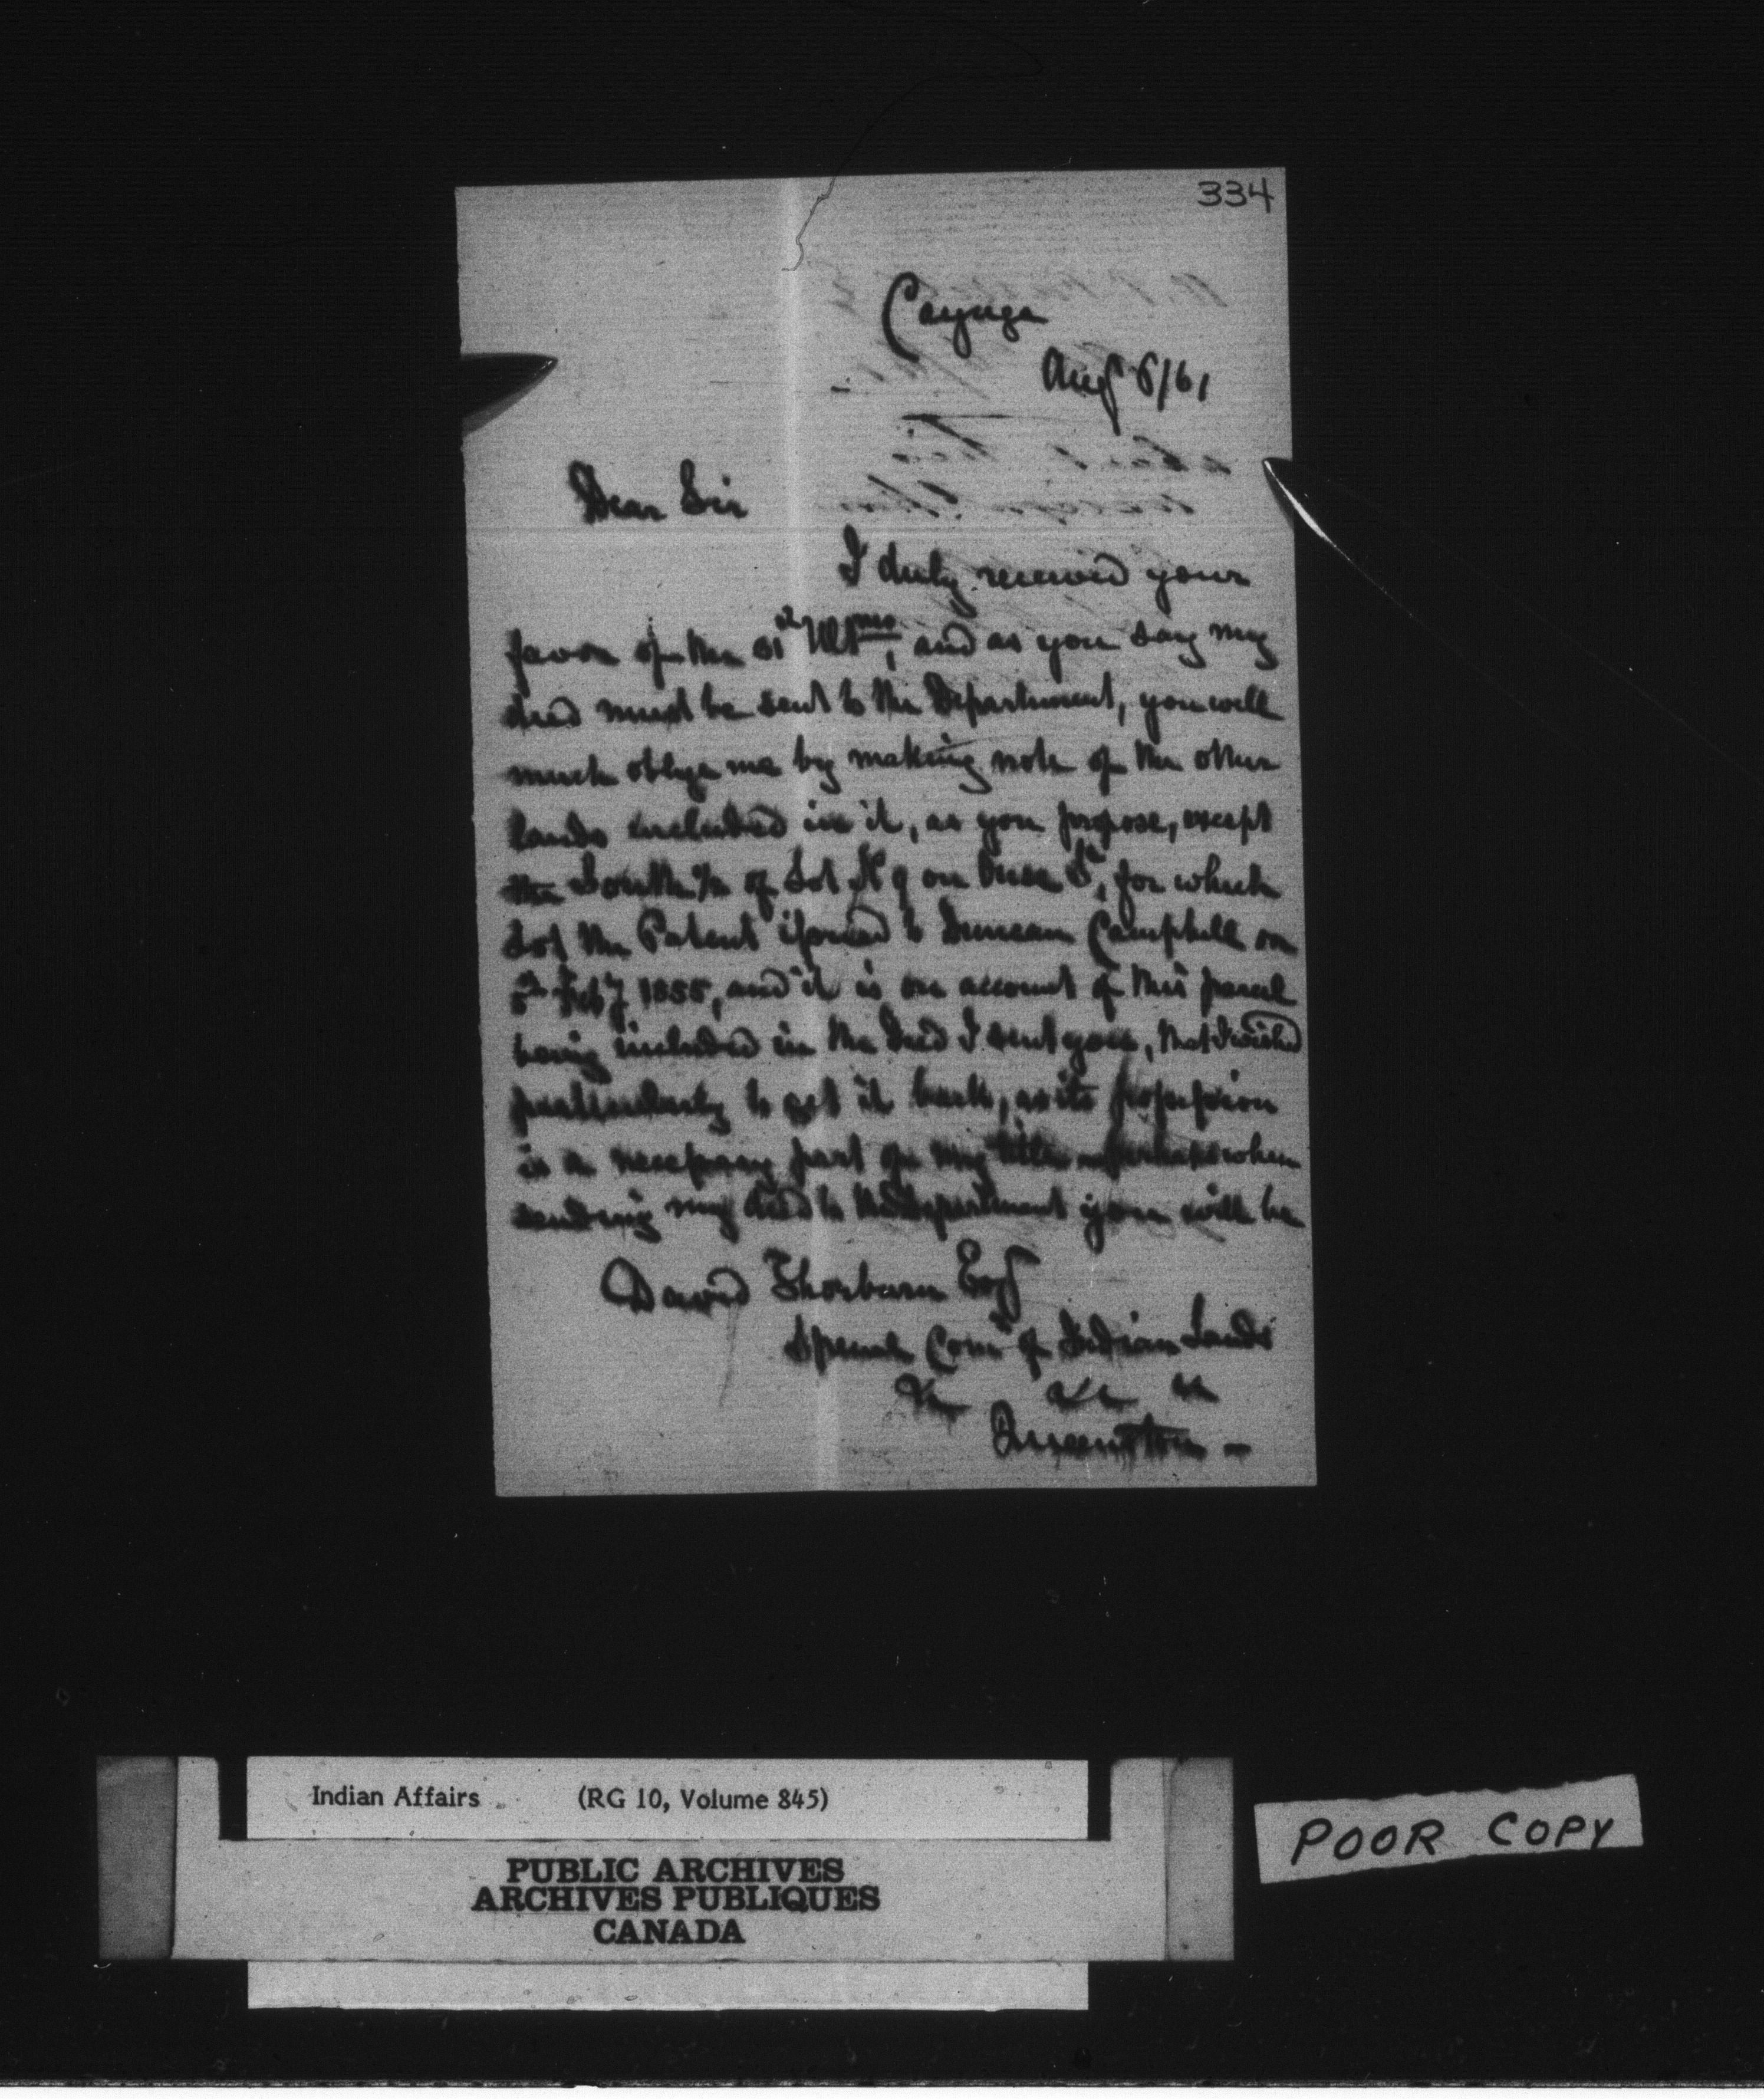 334
Cayuga
Aug 6/61
Dear Sir
I duly received your
favor of the 31st Ultmo, and as you say my
deed must be sent to the Department, you will
much oblige me by making note of the other
lands included in it, as you propose, except
the South ½ of Lot No 9 on St, for which
Lot the Patent issued to Duncan Campbell on
5th Feby 1855, and it is on account of this parcel
being included in the Deed I sent you, that I wished
particularly to get it back, as its possession
is a necessary part of my title perhaps when
sending my deed to the Department you will be
David Thorburn Esq
Special Comr of Indian Lands
&c &c &c
Queenston -
Indian Affairs (RG 10, Volume 845)
PUBLIC ARCHIVES
ARCHIVES PUBLIQUES
CANADA
POOR COPY